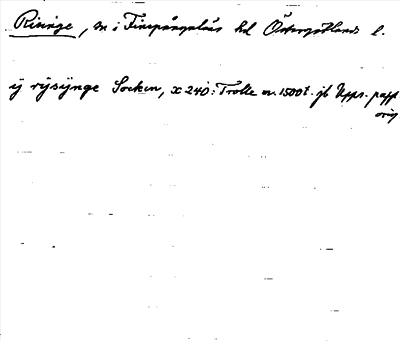 Risinge, sn i Finspångaläns hd Östergötlands l.
ij rijsijnge Socken, x 240: Trolle o. 1500 t. jb Upps. papp
orig